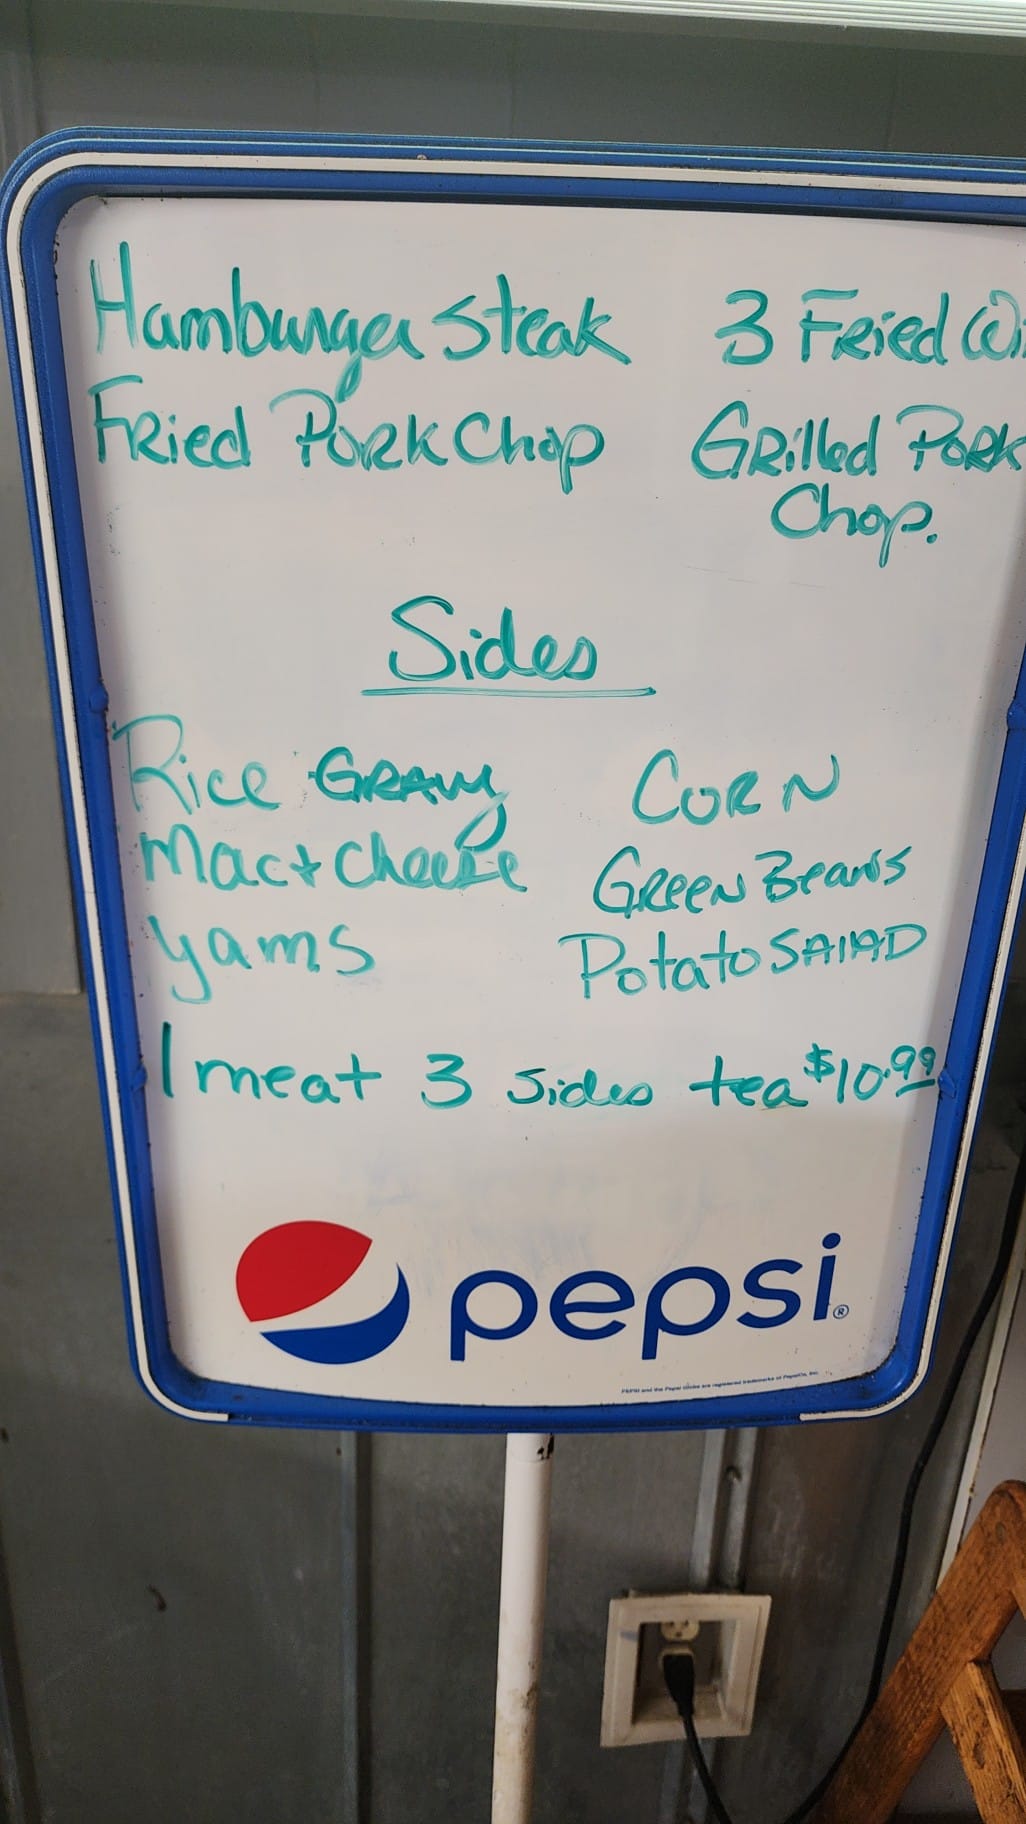 Hamburger Steak 3 Fried
Fried Pork Chop Grilled Pork
Chop.
Sides
Rice Gravy Corn
Mac + Cheese Green Beans
yams Potato Salad
1 meat 3 sides tea $10.99
pepsi®
PEPSI and the Pepsi Globe are registered trademarks of PepsiCo, Inc.